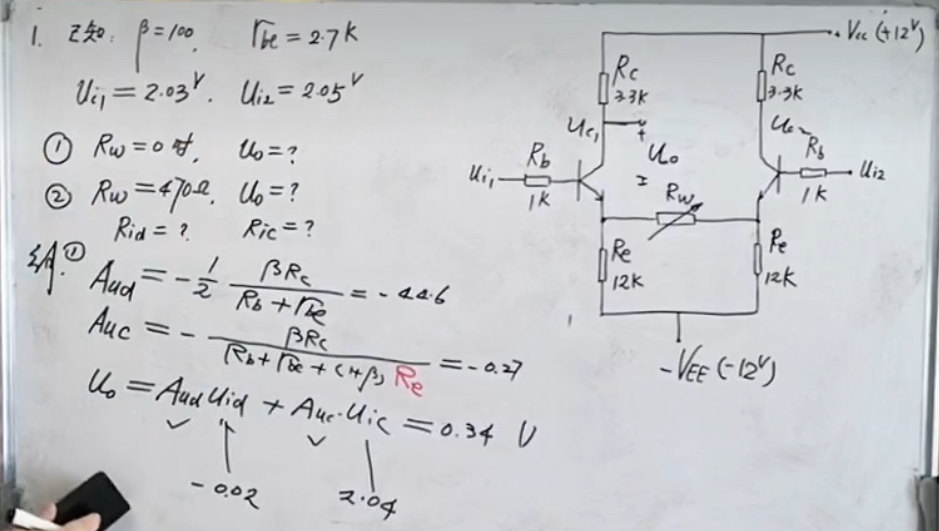 1. 已知: β=100, rbe=2.7K
Ui1=2.03V. Ui2=2.05V
① Rw=0时, Uo=?
② Rw=470Ω, Uo=?
Rid=? Ric=?
解: ①
Aud = -1/2 βRc/(Rb+rbe) = -44.6
Auc = - βRc/(Rb+rbe+(1+β)Re) = -0.27
Uo = Aud Uid + Auc·Uic = 0.34 V
-0.02 2.04
Vcc (+12V)
Rc Rc
3.3K 3.3K
Uc1 + Uo Uc2
Ui1 Rb Rb Ui2
1K Rw 1K
Re Re
12K 12K
-VEE (-12V)